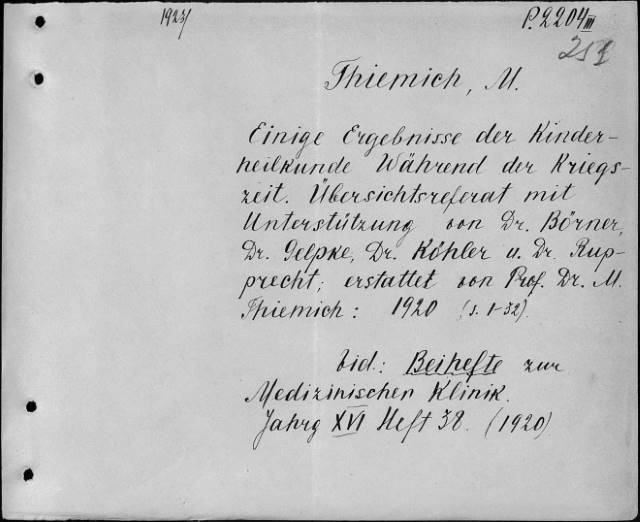 1923/
P. 2204 III
251
Thiemich, M.
Einige Ergebnisse der Kinder-
heilkunde Während der Kriegs-
zeit. Übersichtsreferat mit
Unterstützung von Dr. Börner,
Dr. Gelpke, Dr. Köhler u. Dr. Rup-
precht; erstattet von Prof. Dr. M.
Thiemich: 1920 (s. 1-32).
vid.: Beihefte zur
Medizinischen Klinik.
Jahrg XVI Heft 38. (1920)